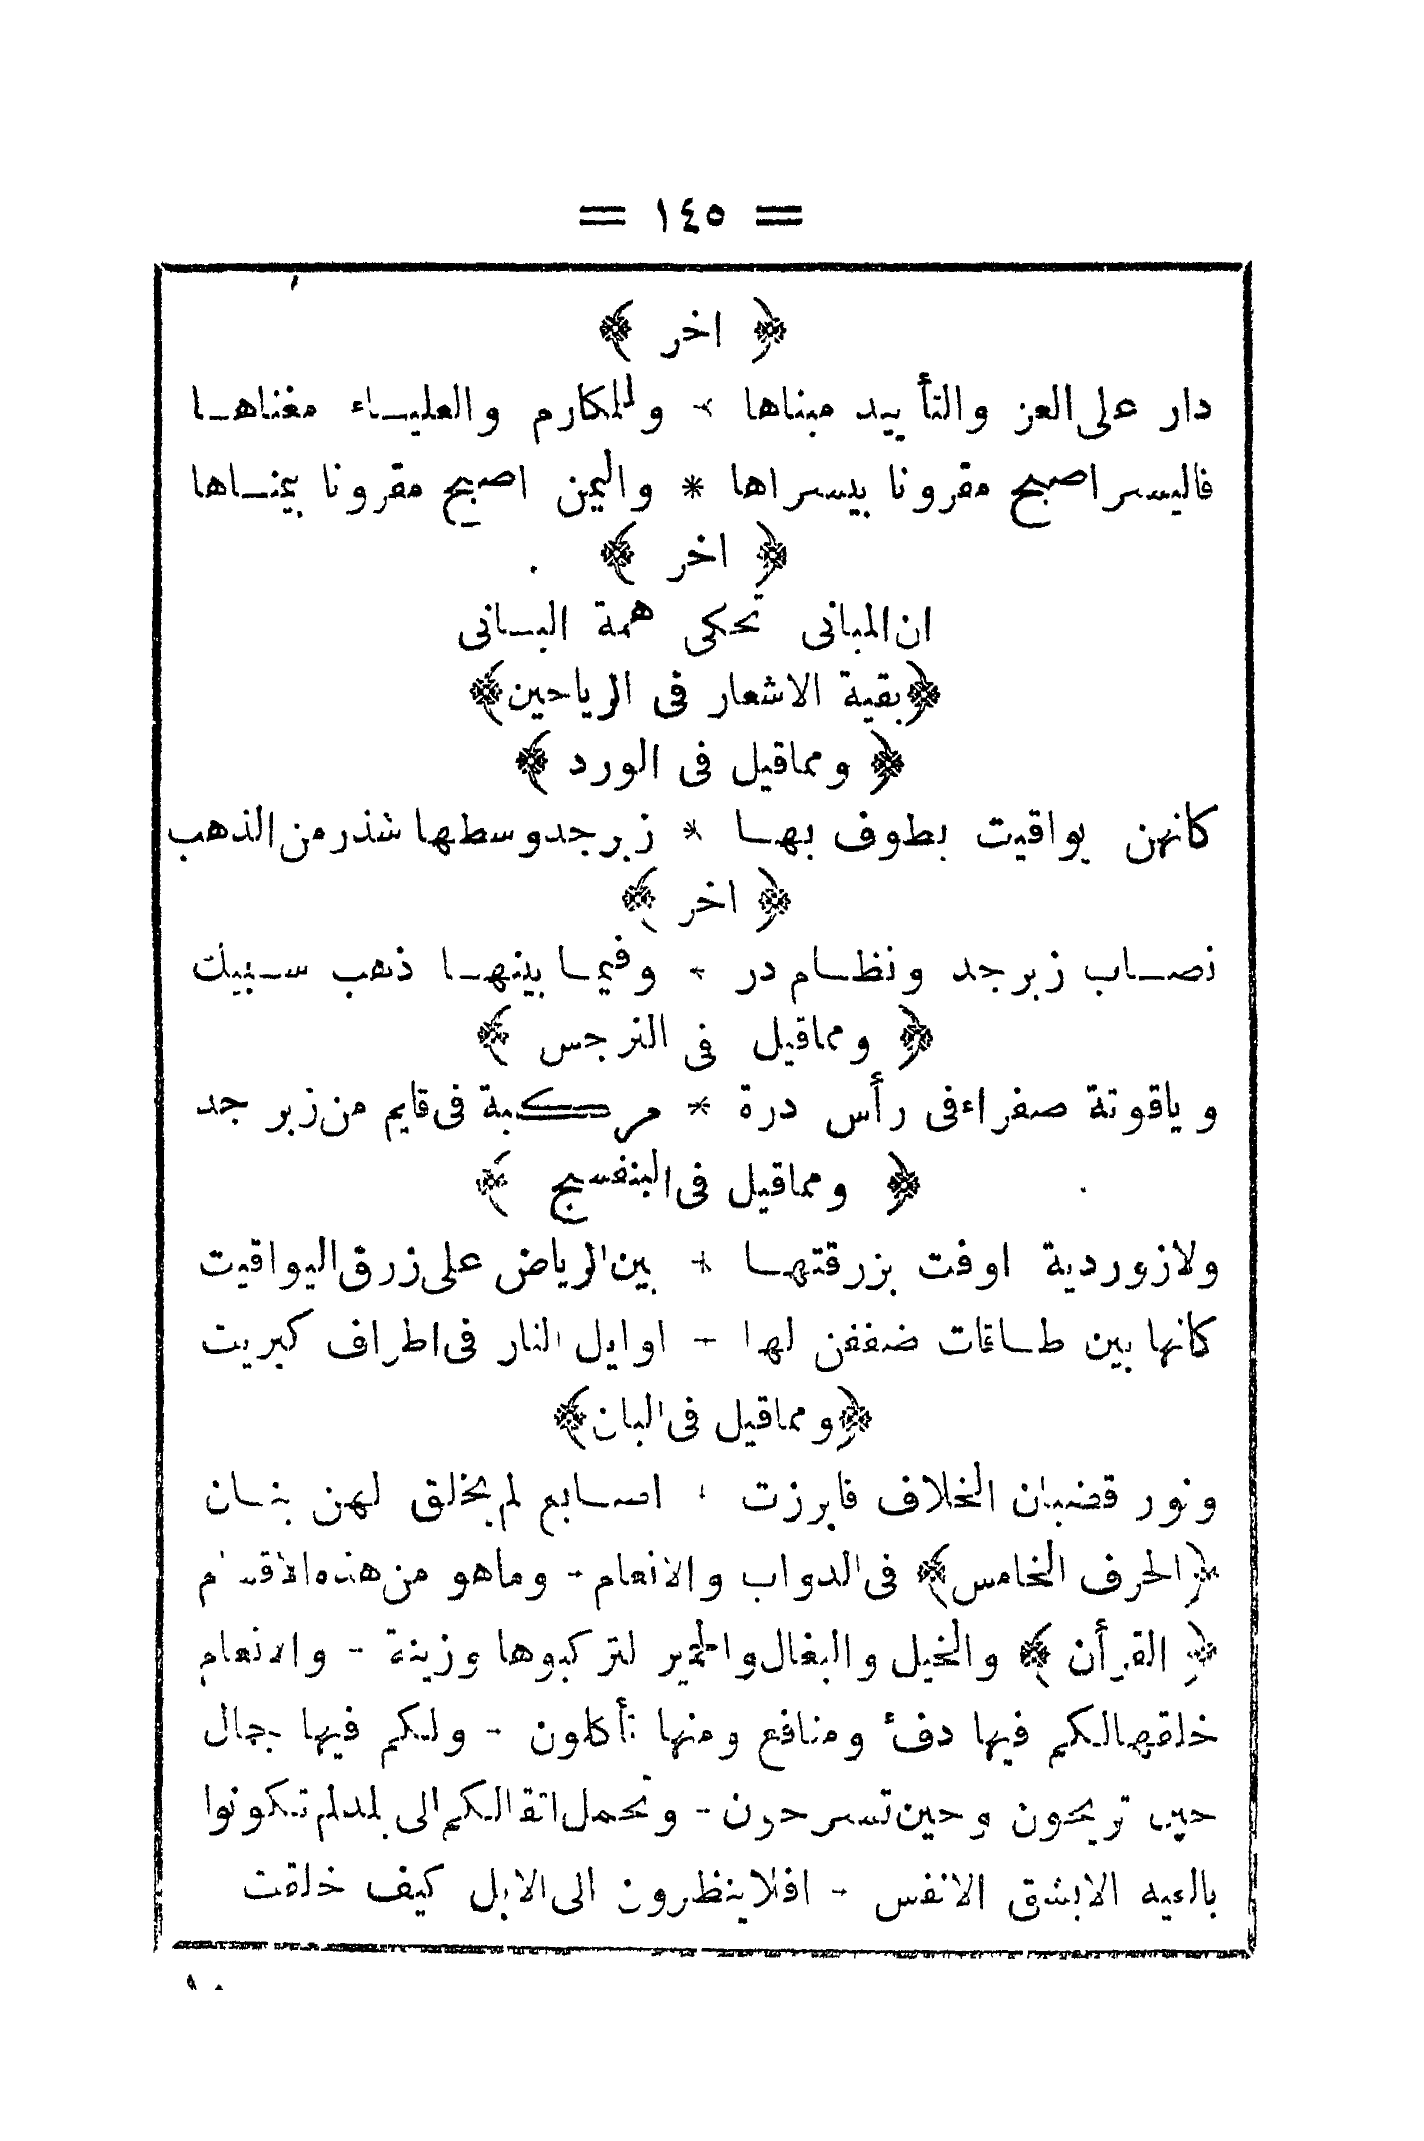 = ١٤٥ =
﴿ اخر ﴾
دار على العز والتأييد مبناها * وللمكارم والعليـاء مغناهـا
فاليسر اصبح مقرونا بيسراها * واليمن اصبح مقرونا بيمنـاها
﴿ اخر ﴾
ان المبانى تحكى همة البـانى
﴿بقية الاشعار فى الرياحين﴾
﴿ ومماقيل فى الورد ﴾
كانهن يواقيت يطوف بهـا * زبرجدوسطها شذر من الذهب
﴿ اخر ﴾
نصـاب زبرجد ونظـام در * وفيمـا بينهـا ذهب سـبيك
﴿ ومماقيل فى النرجس ﴾
وياقوتة صفراء فى رأس درة * مركبة فى قايم من زبرجد
﴿ ومماقيل فى البنفسج ﴾
ولازوردية اوفت بزرقتهـا * بين الرياض على زرق اليواقيت
كانها بين طـاقات ضففن لها - اوايل النار فى اطراف كبريت
﴿ومماقيل فى البان﴾
ونور قضبان الخلاف فابرزت * اصـابع لم يخلق لهن بنـان
﴿الحرف الخامس﴾ فى الدواب والانعام - وماهو من هذه الاقسام
﴿ القرأن ﴾ والخيل والبغال والحمير لتركبوها وزينة - والانعام
خلقهالكم فيها دفئ ومنافع ومنها تأكلون - ولكم فيها جمال
حين تريحون وحين تسرحون - وتحمل اثقالكم الى بلدلم تكونوا
بالغيه الابشق الانفس - افلاينظرون الى الابل كيف خلقت
١٠